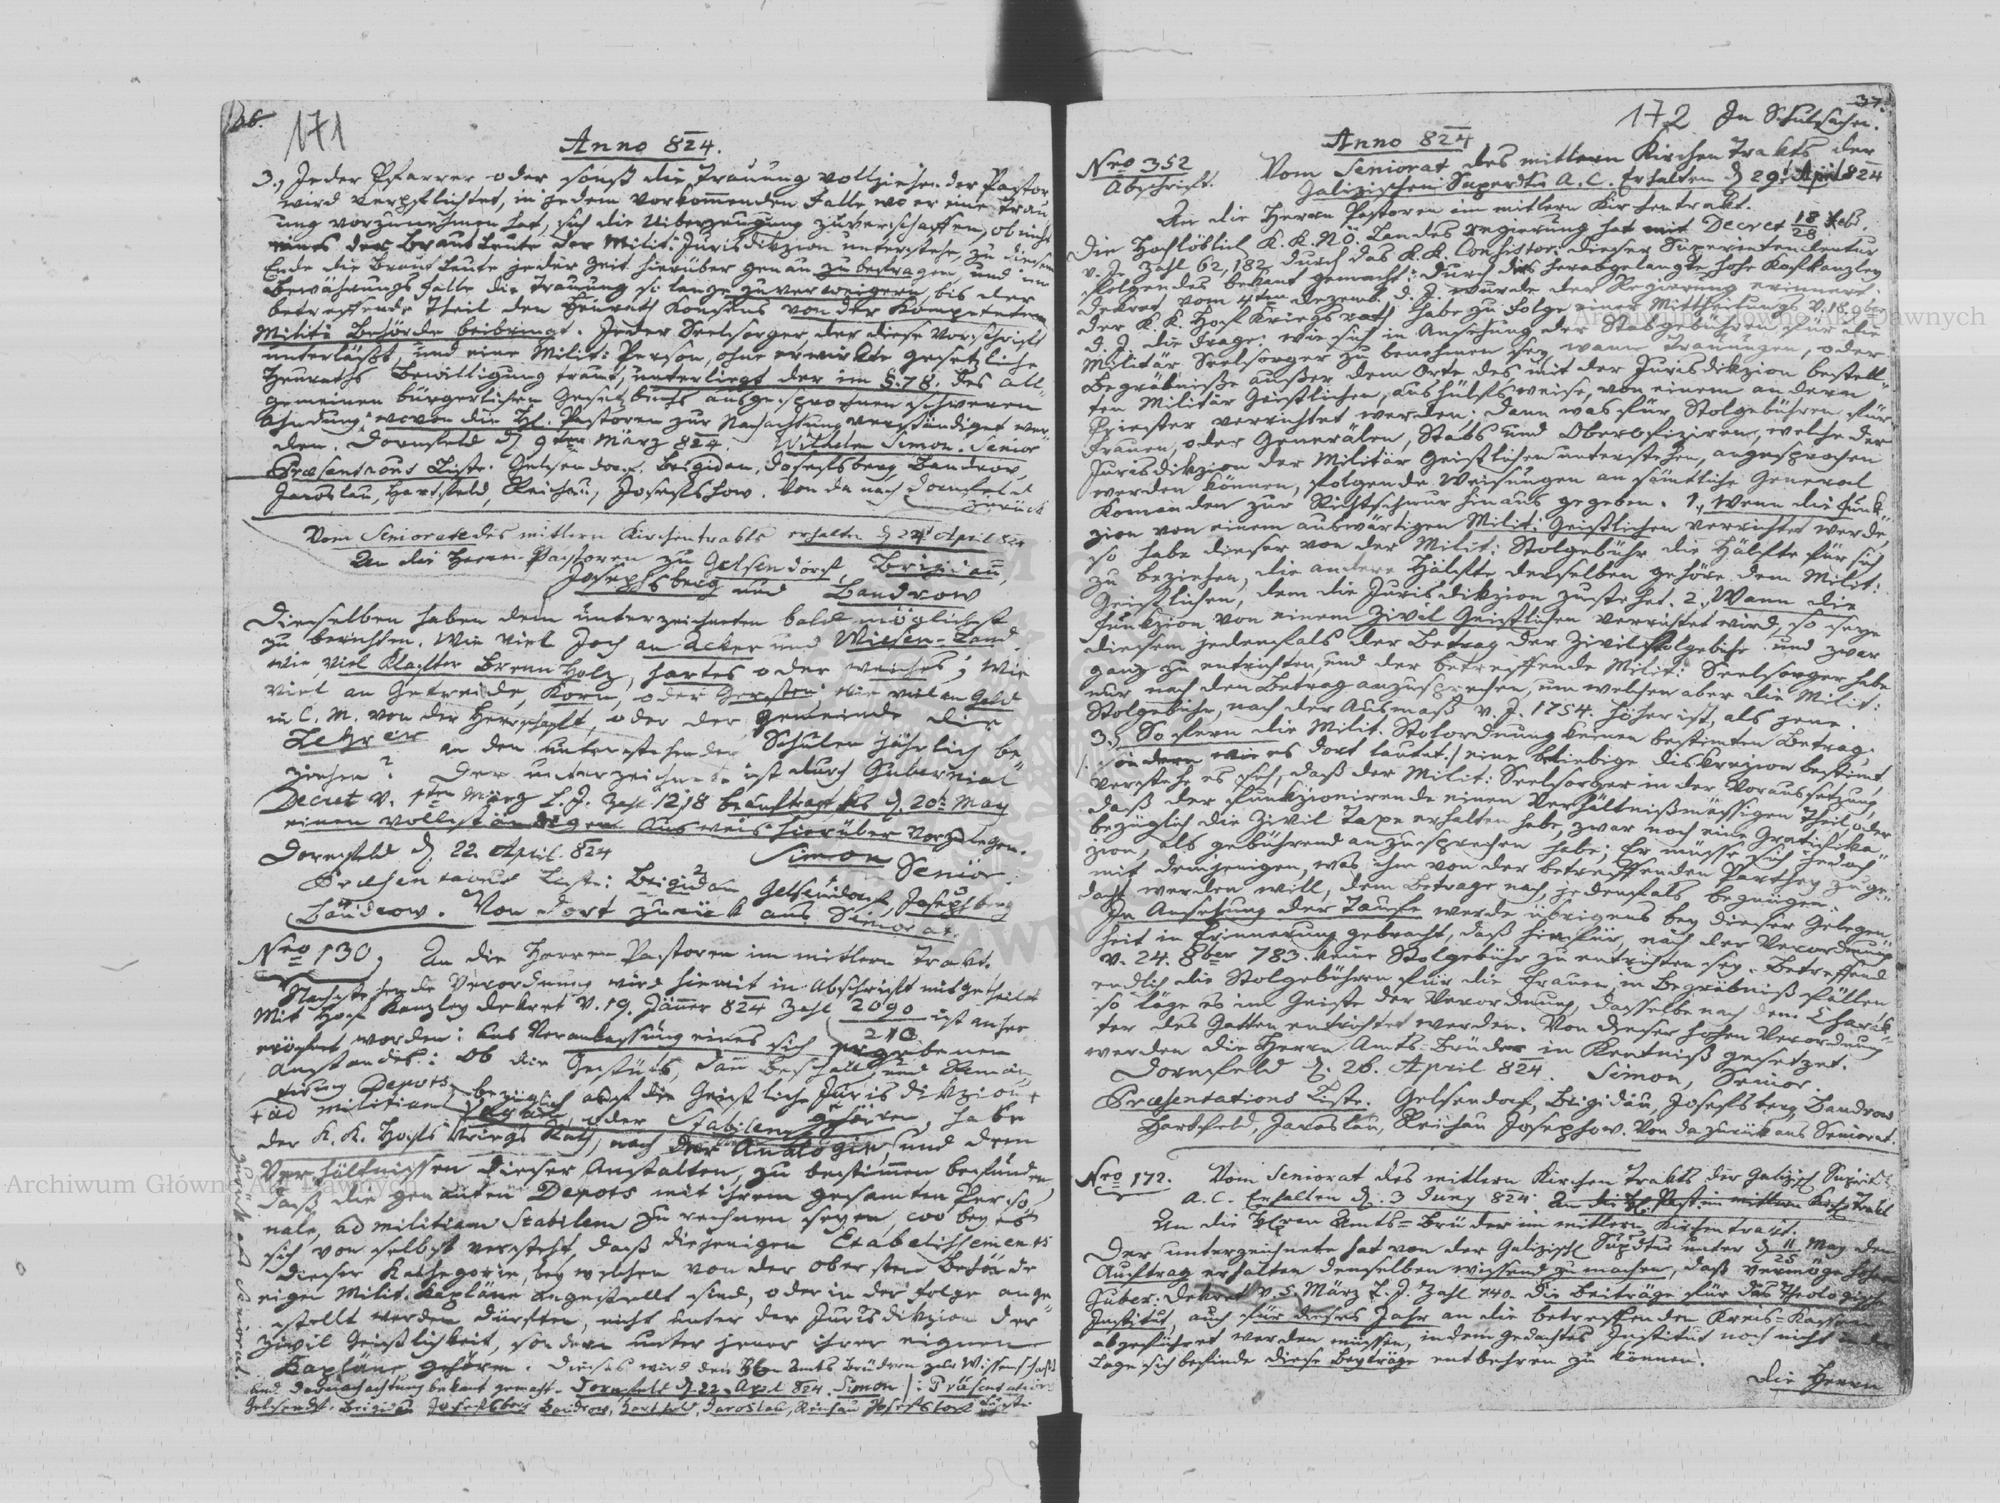 36.
171
Anno 824.
3., Jeder Pfarrer oder sonst die Trauung vollziehende Pastor
wird verpflichtet, in jedem vorkommenden Falle wo er eine Trau
ung vorzunehmen hat, sich die Ueberzeugung zu verschaffen, ob nicht
eines der Brautleute der Milit: Jurisdikzion unterstehe, zu diesem
Ende die Brautleute jeder Zeit hierüber genau zu befragen, und im
Bewährungsfalle die Trauung so lange zu verweigern, bis der
betreffende Theil den Heurath Konsens von der Kompetenten
Milit: Behörde beibringt. Jeder Seelsorger, der diese Vorschrift
unterläßt, und eine Milit: Person, ohne erwirkte gesetzliche
Heuraths Bewilligung traut, unterliegt der im §. 78. des all
gemeinen bürgerlichen Gesetzbuchs ausgesprochnen schweren
Ahndung; wovon die HE. Pastoren zur Nachachtung verständiget wer
den. Dornfeld d. 9ten März 824. Wilhelm Simon. Senior
Præsentaons Liste. Gelsendorf, Brigidau, Josefsberg, Bandrow,
Jaroslau, Hartfeld, Reichau, Josefshow. Von da nach Dornfeld
zurück
Vom Seniorate des mittlern Kirchentrakts erhalten d. 24 April 824
An die Herrn Pastoren zu Gelsendorf, Brigidau,
Josephsberg und Bandrow
Dieselben haben dem unterzeichneten baldmöglichst
zu berichten. Wie viel Joch an Acker und Wiesen-Land
wie viel Klafter Brenn Holz, hartes oder weiches; wie
viel an Getreide, Korn, oder Gersten wie viel an Geld
in C. M. von der Herrschaft, oder der Gemeinde die
Lehrer an den unterstehenden Schulen jährlich be
ziehen? Der unterzeichnete ist durch Gubernial
Decret v. 1ten März l. J. Zahl 1218 beauftragt bis d. 20. May
einen vollständigen Ausweis hierüber vorzulegen.
Dornfeld d. 22 April 824
Simon Senior.
Præsentaons Liste: Brigidau, Gelsendorf, Josephsberg
Bandrow. Von dort zurück ans Seniorat.
Nro 130, An die Herren Pastoren im mittlern Trakt.
Nachstehende Verordnung wird hiemit in Abschrift mitgetheilt
Mit Hof Kanzley Dekret v. 19. Jänner 824 Zahl 2090/210 ist anher
eröffnet worden: Aus Veranlassung eines sich ergebenen
Anstandes: Ob die Gestüts, dan Beschäll und Remon
tirung Depots, bezüglich auf die Geistliche Jurisdikzion +
+ ad militiam vagam, oder Stabilem gehören, habe
der K. K. Hofs Kriegs Rath, nach der Analogie, und dem
Verhältnissen dieser Anstalten, zu bestimmen befunden,
daß die genanten Depots mit ihrem gesamten Perso
nale, ad militiam Stabilem zu rechnen seyen, wo bey es
sich von selbst versteht, daß diejenigen Etabelishements
dieser Kathegorie, bey welchen von der obersten Behörde
eigene Milit. Kapläne angestellt sind, oder in der Folge ange
stellt werden dürften, nicht unter der Jurisdikzion der
Zivil Geistlichkeit, sondern unter jener ihrer eignen
Kapläne gehören. Dieses wird den HEn Amts Brüdern zur Wissenschaft
und Darnachachtung bekant gemacht. Dornfeld d. 22. April 824. Simon /: Präsentations
Gelsendf. Brigidau Josefsberg Bandrow, Hartfeld, Jaroslau, Reichau Josefshow Liste
zurück ans Seniorat.
37.
172 In Schulsachen.
Anno 824
Nro 352 Vom Seniorat des mittlern Kirchen Trakts der
Abschrift. Galizischen Superdtz A. C. Erhalten d 29. April 824
An die Herrn Pastoren im mittlern Kirchentrakt.
Die Hochlöblich K. K. NÖ. Landes Regierung hat mit Decret 18/28 Feb.
v. J. Zahl 62,182 durch das K. K. Consistor. dieser Superintendentur
folgendes bekant gemacht: Durch das herabgelangte hohe Hofkanzley
Dekret vom 4ten Dezemb. d. J. wurde der Regierung erinnert.
Der K. K. Hof Kriegsrath habe zu Folge einer Mittheilung v. 18. 9ber
d. J. die Frage: wie sich in Ansehung der Stolgebühren für die
Militär Seelsorger zu benehmen sey, wann Trauungen, oder
Begräbniße außer dem Orte des mit der Jurisdikzion bestell
ten Militär Geistlichen, aushülfsweise, von einem andern
Priester verrichtet werden; dann was für Stolgebühren für
Frauen, oder Generälen, Stabs und Oberofiziren, welche der
Jurisdikzion der Militär Geistlichen unterstehen, angesprochen
werden können, folgende Weisungen an sämtliche General
Komanden zur Richtschnur hinaus gegeben. 1., Wenn die Funk
zion von einem auswärtigen Milit. Geistlichen verrichtet werde,
so habe dieser von der Milit: Stolgebühr die Hälfte für sich
zu beziehen, die andere Hälfte derselben gehöre dem Milit:
Geistlichen, dem die Jurisdikzion zustehet. 2., Wann die
Funkzion von einem Zivil Geistlichen verrichtet wird, so seye
diesem jedenfals der Betrag der Zivilstolgebühr und zwar
ganz zu entrichten und der betreffende Milit: Seelsorger habe
nur nach den Betrag anzusprechen, um welchen aber die Milit:
Stolgebühr, nach der Ausmaß v. J. 1754. höher ist, als jene.
3., So fern die Milit. Stolordnung keinen bestimten Betrag.
/: sondern wie es dort lautet:/ eine beliebige Diskrezion bestimt,
verstehe es sich, daß der Milit: Seelsorger in der Voraussetzung
daß der Funkzionirende einen Verhältnißmässigen Theil oder
bezüglich die Zivil Taxe erhalten habe, zwar noch eine Gratifika
zion, als gebührend anzusprechen habe; Er müsse sich jedoch
mit demjenigen, was ihm von der betreffenden Parthey zuge
dacht werden will, dem Betrage nach, jedenfals begnügen.
In Ansehung der Taufe werde übrigens bey dieser Gelegen
heit in Erinnerung gebracht, daß hiefür, nach der Verordnung
v. 24. 8ber 783. keine Stolgebühr zu entrichten sey. Betreffend
endlich die Stolgebühren für die Frauen in Begräbniß fällen
so läge es im Geiste der Verordnung, dasselbe nach dem Charak
ter des Gatten entrichtet werden. Von dieser hohen Verordnung
werden die Herrn Amts Brüder in Kentniß gesetzet.
Dornfeld d. 26. April 824. Simon, Senior.
Præsentations Liste. Gelsendorf, Brigidau, Josefsberg, Bandrow
Hartfeld, Jaroslau, Reichau Josephow. Von da zurück ans Seniorat.
Nro 172. Vom Seniorat des mittlern Kirchen Trakts der Galizisch Suprdtz
A. C. Erhalten d. 3 Juny 824. An die HE. Past: im mittlern Kirch Trakt
An die HEren Amts-Brüder im mittlern Kirchentrakt.
Der unterzeichnete hat von der Galizisch Supdtur unter d 11/25 May den
Auftrag erhalten denselben wissend zu machen, daß vermöge hohen
Guber. Dekret v. 5. März l. J. Zahl 740. die Beiträge für das Theologische
Institut, auch für dieses Jahr an die betreffenden Kreis-Kassen
abgeführt werden müssen, indem gedachtes Institut noch nicht in der
Lage sich befinde diese Beyträge entbehren zu können.
Die Herrn
Archiwum Główne Akt Dawnych
Archiwum Główne Akt Dawnych